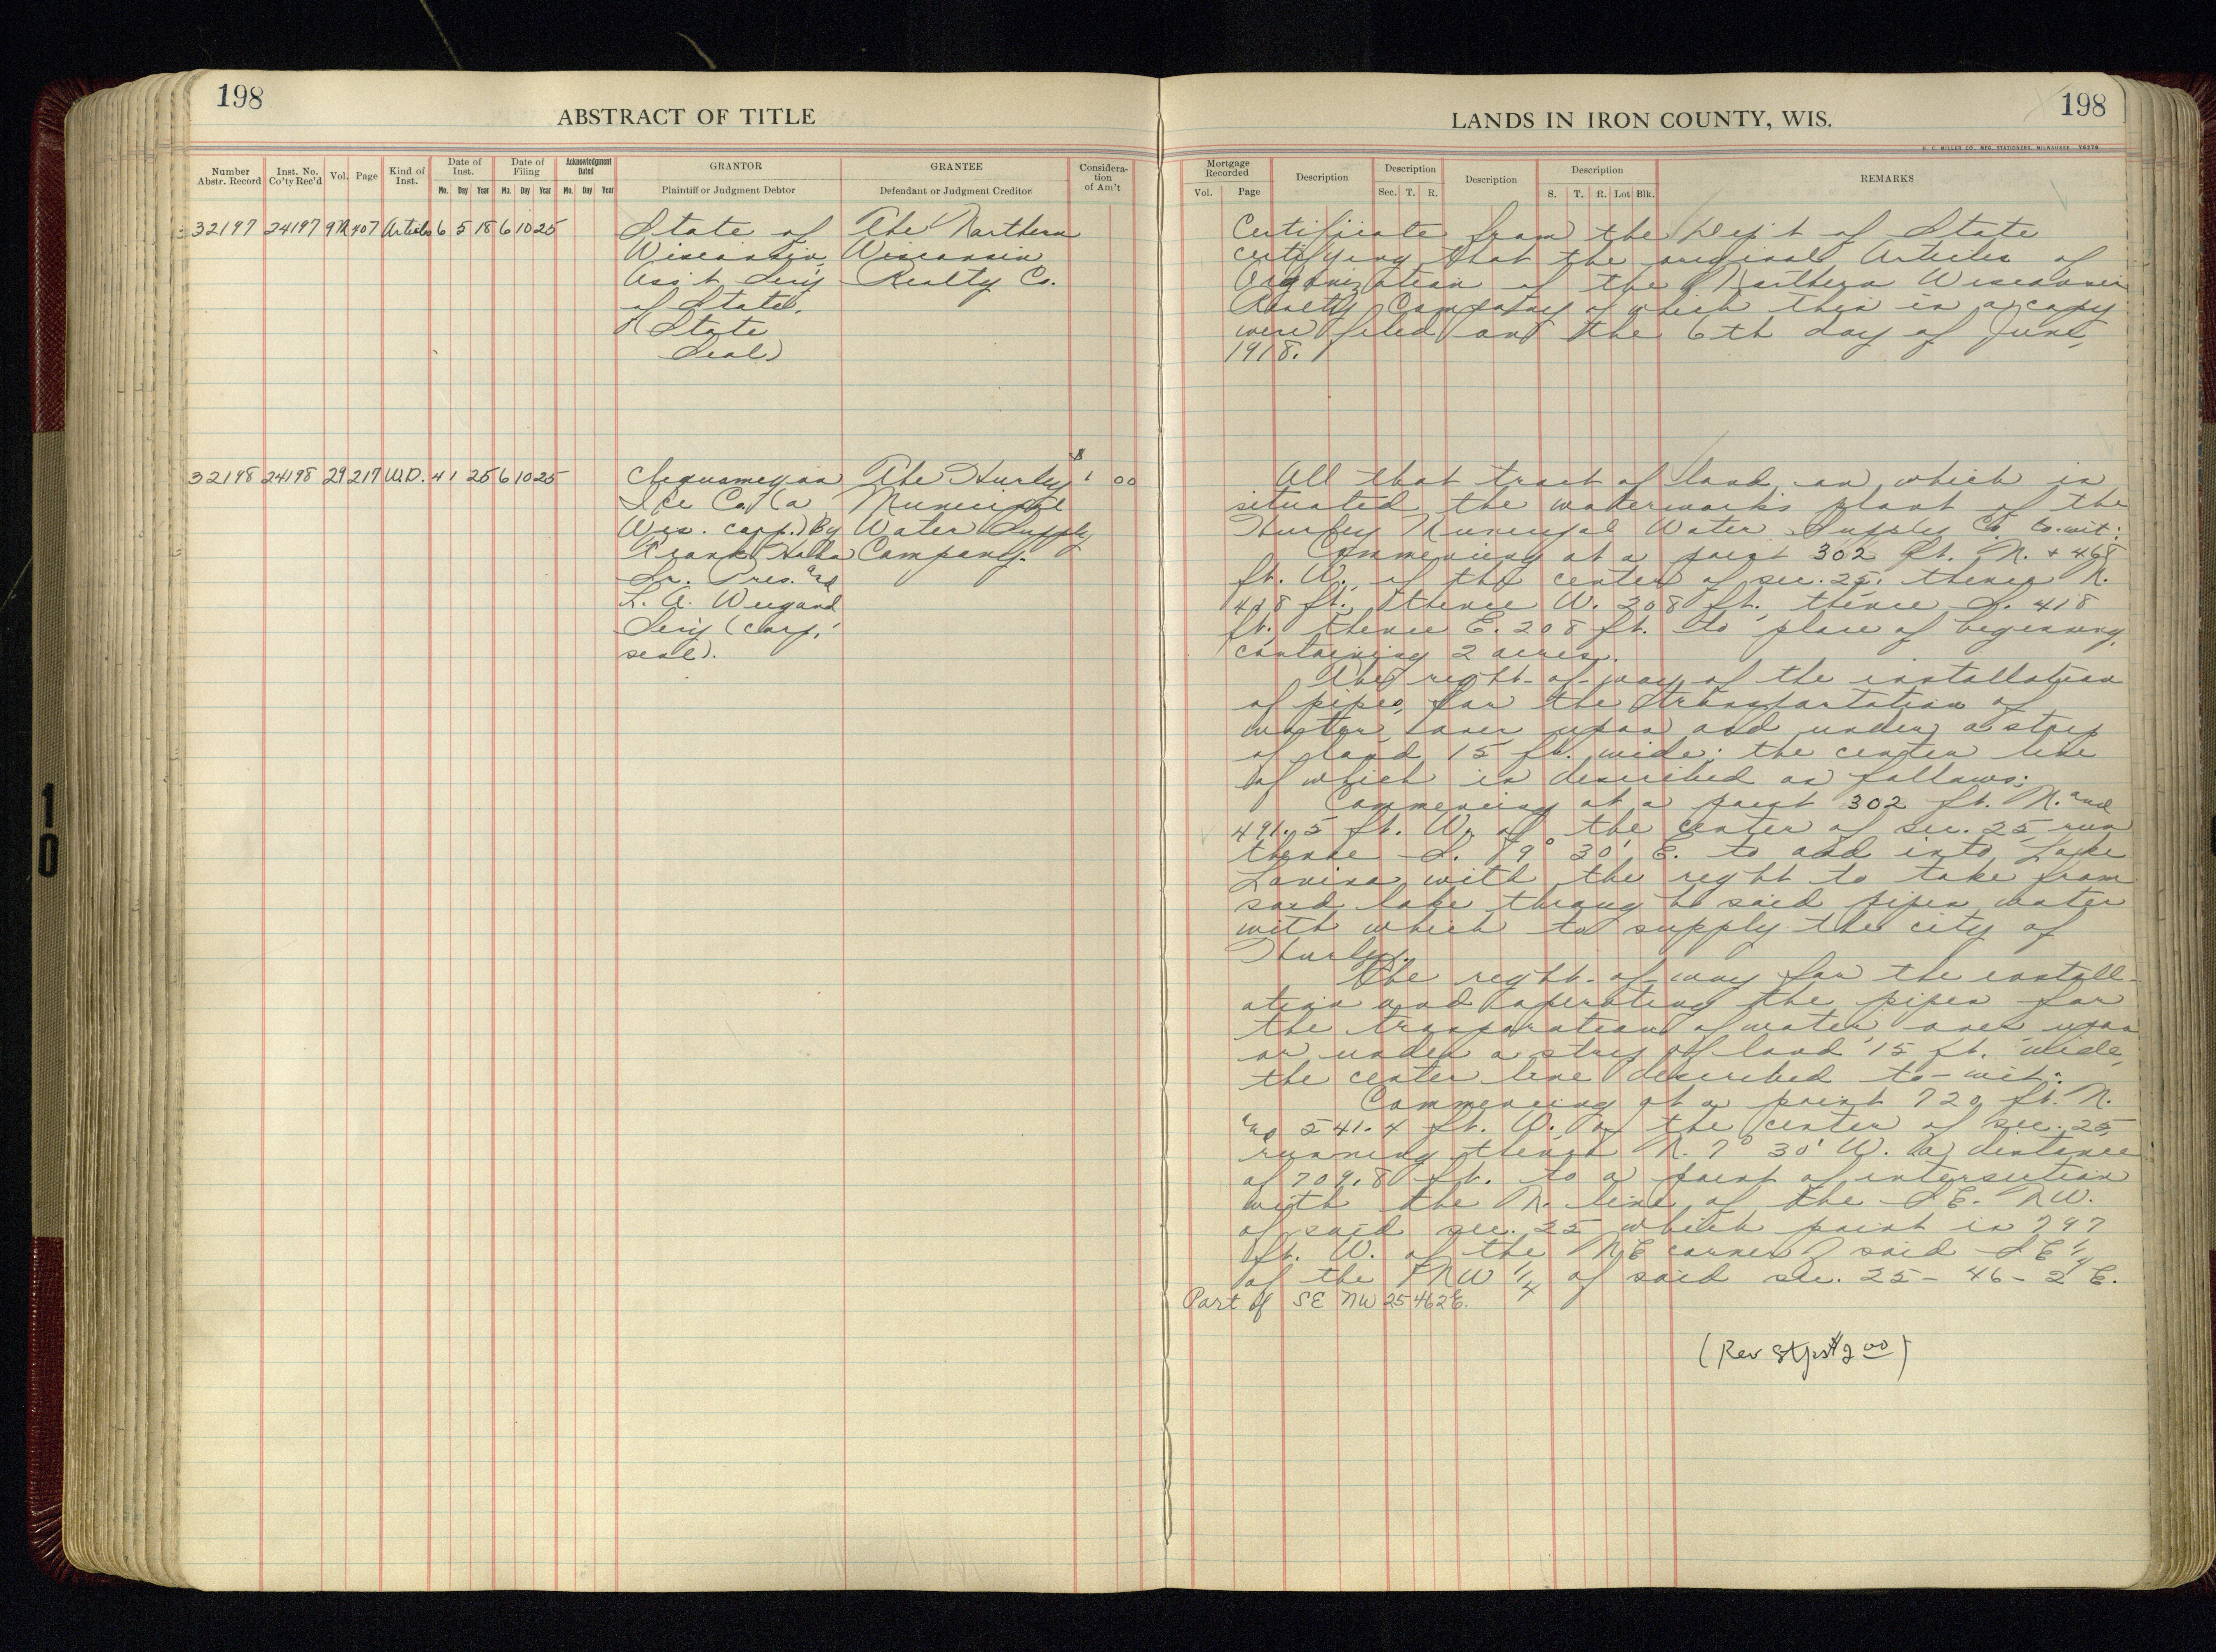 198
ABSTRACT OF TITLE
Number Abstr. Record | Inst. No. Co'ty Rec'd | Vol. | Page | Kind of Inst. | Date of Inst. Mo. Day Year | Date of Filing Mo. Day Year | Acknowledgment Dated Mo. Day Year | GRANTOR Plaintiff or Judgment Debtor | GRANTEE Defendant or Judgment Creditor | Consideration of Am't
32197 24197 407 Articles 6 5 18 6 10 25
State of
Wisconsin,
Ass't Sec'y
of State.
(State
Seal)
The Northern
Wisconsin
Realty Co.
32198 24198 29 217 W.D. 4 1 25 6 10 25
Chequamegon
Ice Co. (a
Wis. corp.) By
Frank
Sr. Pres. and
L. A. Weigand
Sec'y (corp.
seal).
The Hurley
Municipal
Water Supply
Company.
$ 1 00
198
LANDS IN IRON COUNTY, WIS.
H. C. MILLER CO. MFG. STATIONERS, MILWAUKEE
Mortgage Recorded Vol. Page | Description | Description Sec. T. R. | Description | Description S. T. R. Lot Blk. | REMARKS
Certificate from the Dep't of State
certifying that the original Articles of
Organization of the Northern Wisconsin
Realty Company of which this is a copy
were filed on the 6th day of June,
1918.
All that tract of land on which is
situated the waterworks plant of the
Hurley Municipal Water Supply Co. to-wit:
Commencing at a point 302 ft. N. + 468
ft. W. of the center of sec. 25. thence N.
418 ft., thence W. 208 ft., thence S. 418
ft. thence E. 208 ft. to place of beginning,
containing 2 acres.
The right-of-way of the installation
of pipes, for the transportation of
water over upon and under a strip
of land 15 ft. wide; the center line
of which is described as follows:
Commencing at a point 302 ft. N. and
491.5 ft. W. of the center of sec. 25 run
thence S. 79° 30' E. to and into Lake
Lavina with the right to take from
said lake through said pipes water
with which to supply the city of
Hurley.
The right-of-way for the install-
ation and operating the pipes for
the transporation of water over upon
or under a strip of land 15 ft. wide,
the center line described to-wit:
Commencing at a point 720 ft. N.
and 541.4 ft. W. of the center of sec. 25,
running thence N. 7° 30' W. a distance
of 709.8 ft. to a point of intersection
with the N. line of the SE. NW.
of said sec. 25 which point is 797
ft. W. of the NE corner of said SE 1/4
of the NW 1/4 of said sec. 25-46-2 E.
Part of SE NW 25 46 2E.
(Rev Stps $2 00)
10